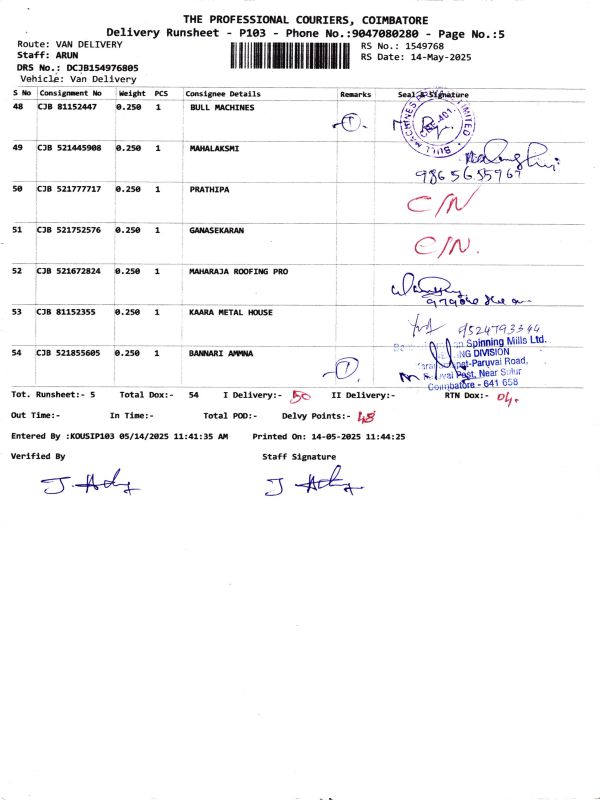 THE PROFESSIONAL COURIERS, COIMBATORE
Delivery Runsheet - P103 - Phone No.:9047080280 - Page No.:5
Route: VAN DELIVERY
RS No.: 1549768
Staff: ARUN
RS Date: 14-May-2025
DRS No.: DCJB154976805
Vehicle: Van Delivery
S No Consignment No Weight PCS Consignee Details Remarks Seal & Signature
48 CJB 81152447 0.250 1 BULL MACHINES
49 CJB 521445908 0.250 1 MAHALAKSMI
9865655967
50 CJB 521777717 0.250 1 PRATHIPA C/N
51 CJB 521752576 0.250 1 GANASEKARAN C/N.
52 CJB 521672824 0.250 1 MAHARAJA ROOFING PRO
53 CJB 81152355 0.250 1 KAARA METAL HOUSE
9524793344
Spinning Mills Ltd.
54 CJB 521855605 0.250 1 BANNARI AMMNA
DIVISION
Paruvai Road,
Post, Near Sulur
Coimbatore - 641 658
Tot. Runsheet:- 5 Total Dox:- 54 I Delivery:- 50 II Delivery:- RTN Dox:- 04.
Out Time:- In Time:- Total POD:- Delvy Points:- 48
Entered By :KOUSIP103 05/14/2025 11:41:35 AM Printed On: 14-05-2025 11:44:25
Verified By Staff Signature